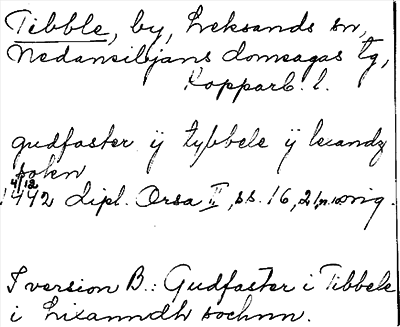 Tibble, by, Leksands sn,
Nedansiljans domsagas tg,
Kopparb. l.
gudfaster ÿ tybbele ÿ lexandz
sokn
4/12
1442 dipl. Orsa II, ss. 16, 21, orig.
I version B.: Gudfaster i Tibbele
i Lixanndh sochnn.